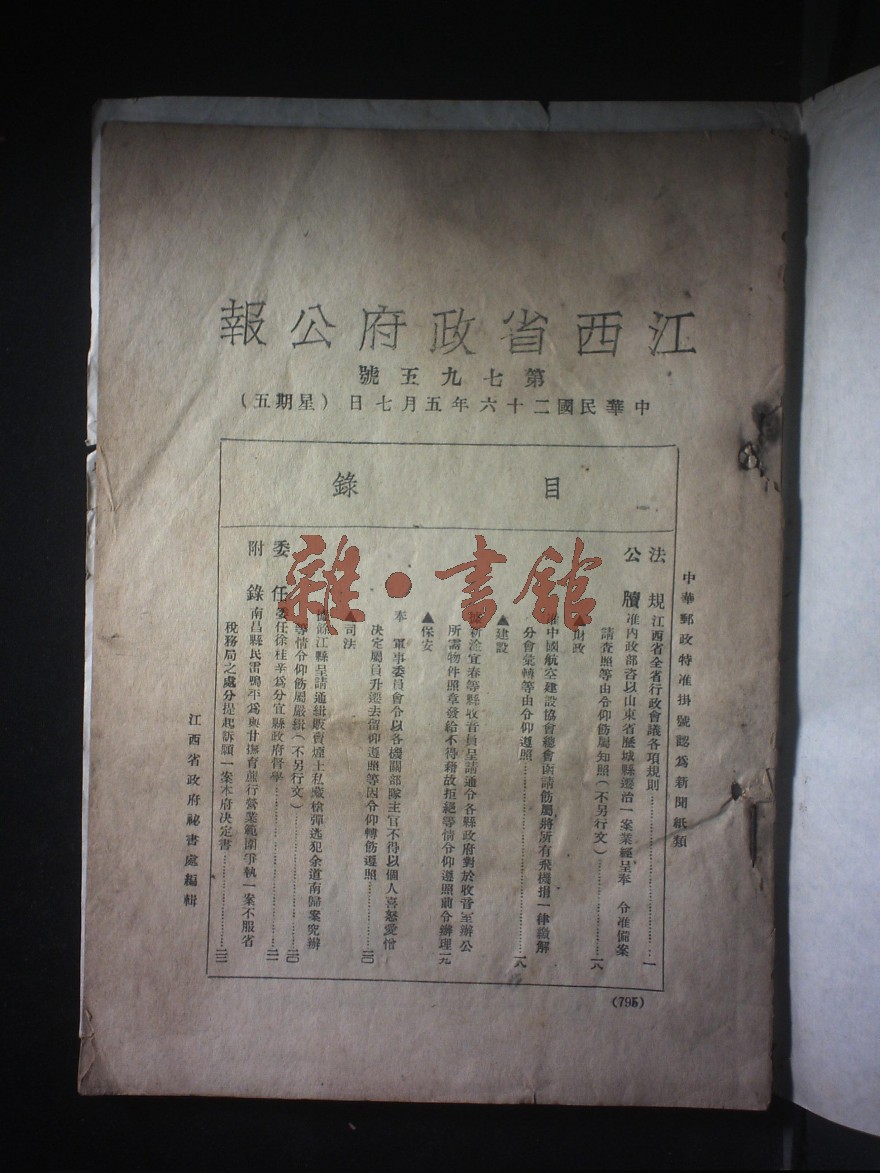 江西省政府公報
第七九五號
中華民國二十六年五月七日（星期五）
中華郵政特准掛號認爲新聞紙類
目錄
法規
江西省全省行政會議各項規則………一
公牘
准內政部咨以山東省歷城縣遷治一案業經呈奉　令准備案
請查照等由令仰飭屬知照（不另行文）………一八
▲財政
中國航空建設協會總會函請飭屬將所有飛機捐一律繳解
分會彙轉等由令仰遵照………一八
▲建設
新淦宜春等縣收音員呈請通令各縣政府對於收音室辦公
所需物件照章發給不得藉故拒絕等情令仰遵照前令辦理一九
▲保安
奉　軍事委員會令以各機關部隊主官不得以個人喜怒愛憎
決定屬員升遷去留仰遵照等因令仰轉飭遵照………二〇
▲司法
餘江縣呈請通緝販賣煙土私藏槍彈逃犯余道南歸案究辦
等情令仰飭屬嚴緝（不另行文）………二〇
委任
委任徐桂辛爲分宜縣政府督學………二一
附錄
南昌縣民雷鳴平爲與甘撫育蔗行營業範圍爭執一案不服省
稅務局之處分提起訴願一案本府決定書………二二
江西省政府祕書處編輯
(795)
雜·書館